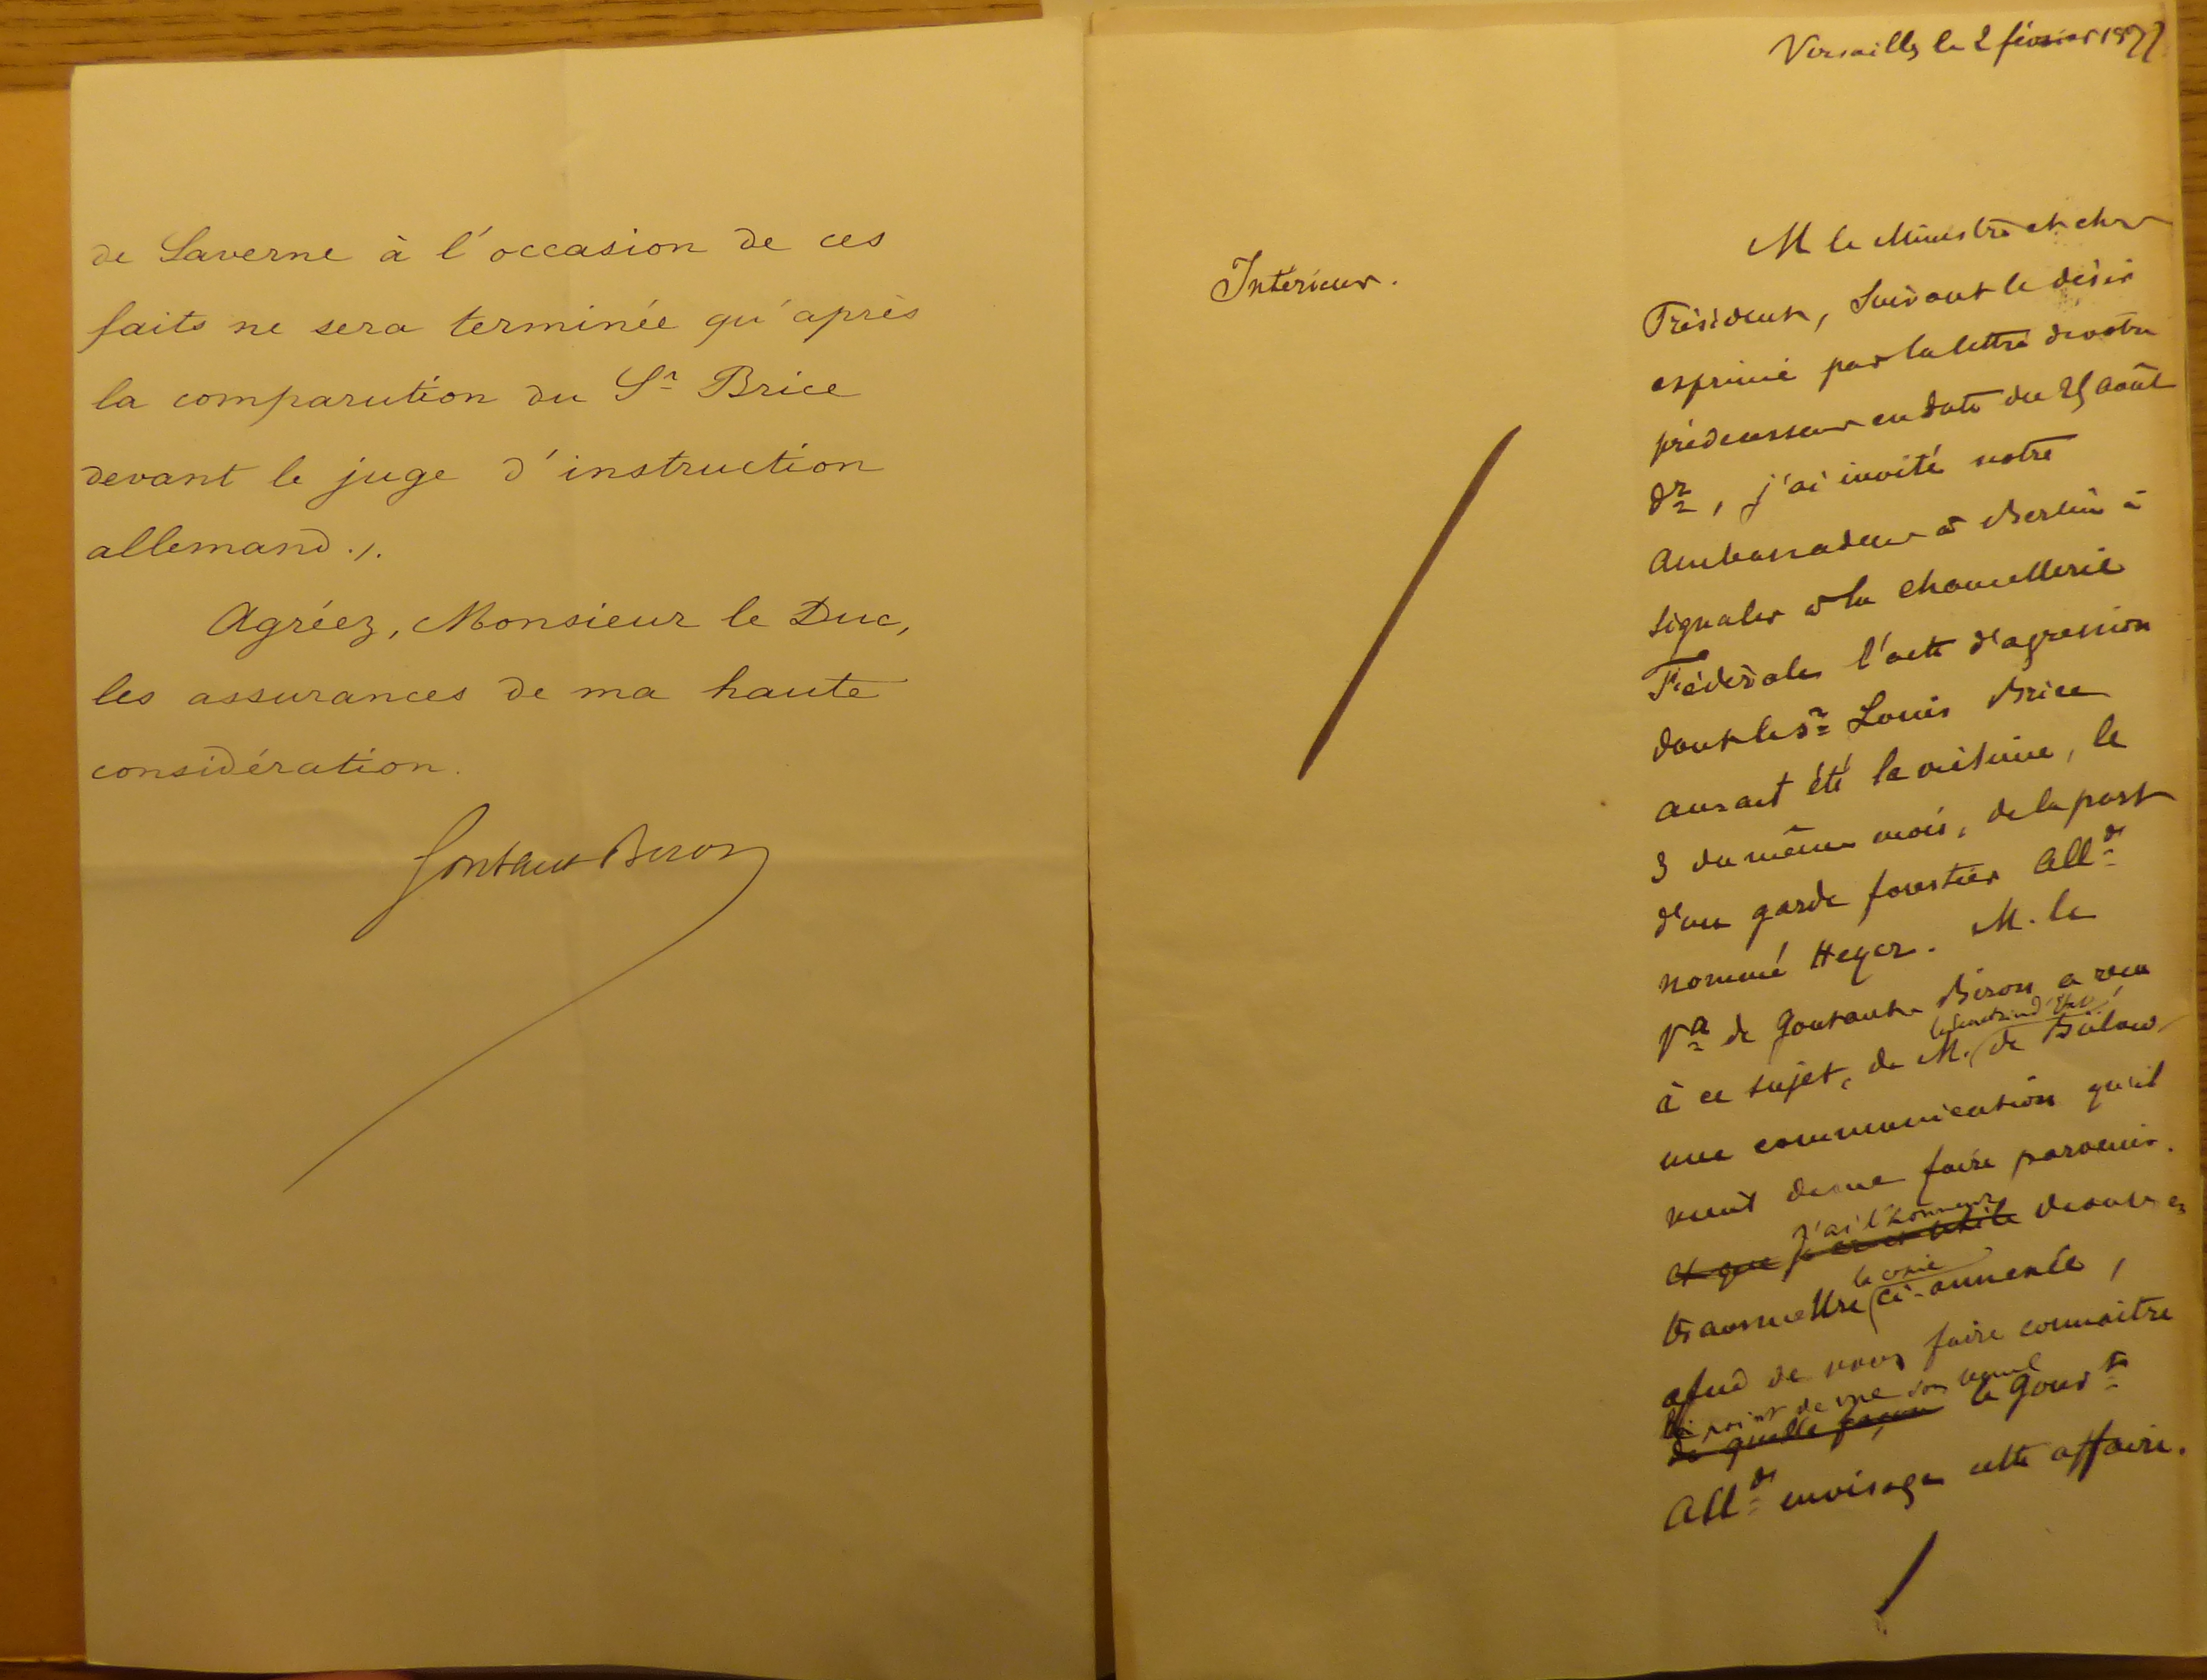 de Saverne à l'occasion de ces
faits ne sera terminée qu'après
la comparution du Sr Brice
devant le juge d'instruction
allemand ./.
Agréez, Monsieur le Duc,
les assurances de ma haute
considération.
Gontaut Biron
Versailles le 2 février 1877
Intérieur.
M le Ministre et cher
Président, Suivant le désir
exprimé par la lettre de votre
prédécesseur en date du 25 août
dr, j'ai invité notre
Ambassadeur à Berlin à
signaler à la Chancellerie
Fédérale l'acte d'agression
dont le Sr Louis Brice
aurait été la victime, le
3 du même mois, de la part
d'un garde forestier Alld
nommé Heyer. M. le
Vte de Gontaut Biron a reçu
à ce sujet, de M. de Bülow
une communication qu'il
vient de me faire parvenir.
et que j'ai l'honneur de vous
transmettre la copie ci-annexée,
afin de vous faire connaitre
le point de vue
de quelle façon le Gouvt
Alld envisage cette affaire.